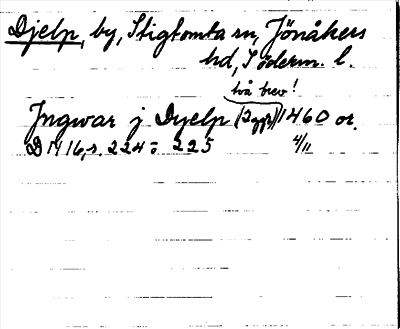 Djelp, by, Stigtomta sn, Jönåkers
hd, Söderm. l.
två brev!
Ingwar j Dyelp (2 ggr) 1460 or.
D N 16, s. 224 o 225 4/11